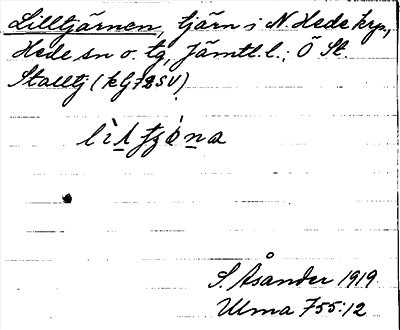 Lilltjärnen, tjärn i N. Hede kyr.,
Hede sn o. tg, Jämtl. l.; Ö St.
Stalltj (kG72SV)
S. Åsander 1919
Ulma 755:12